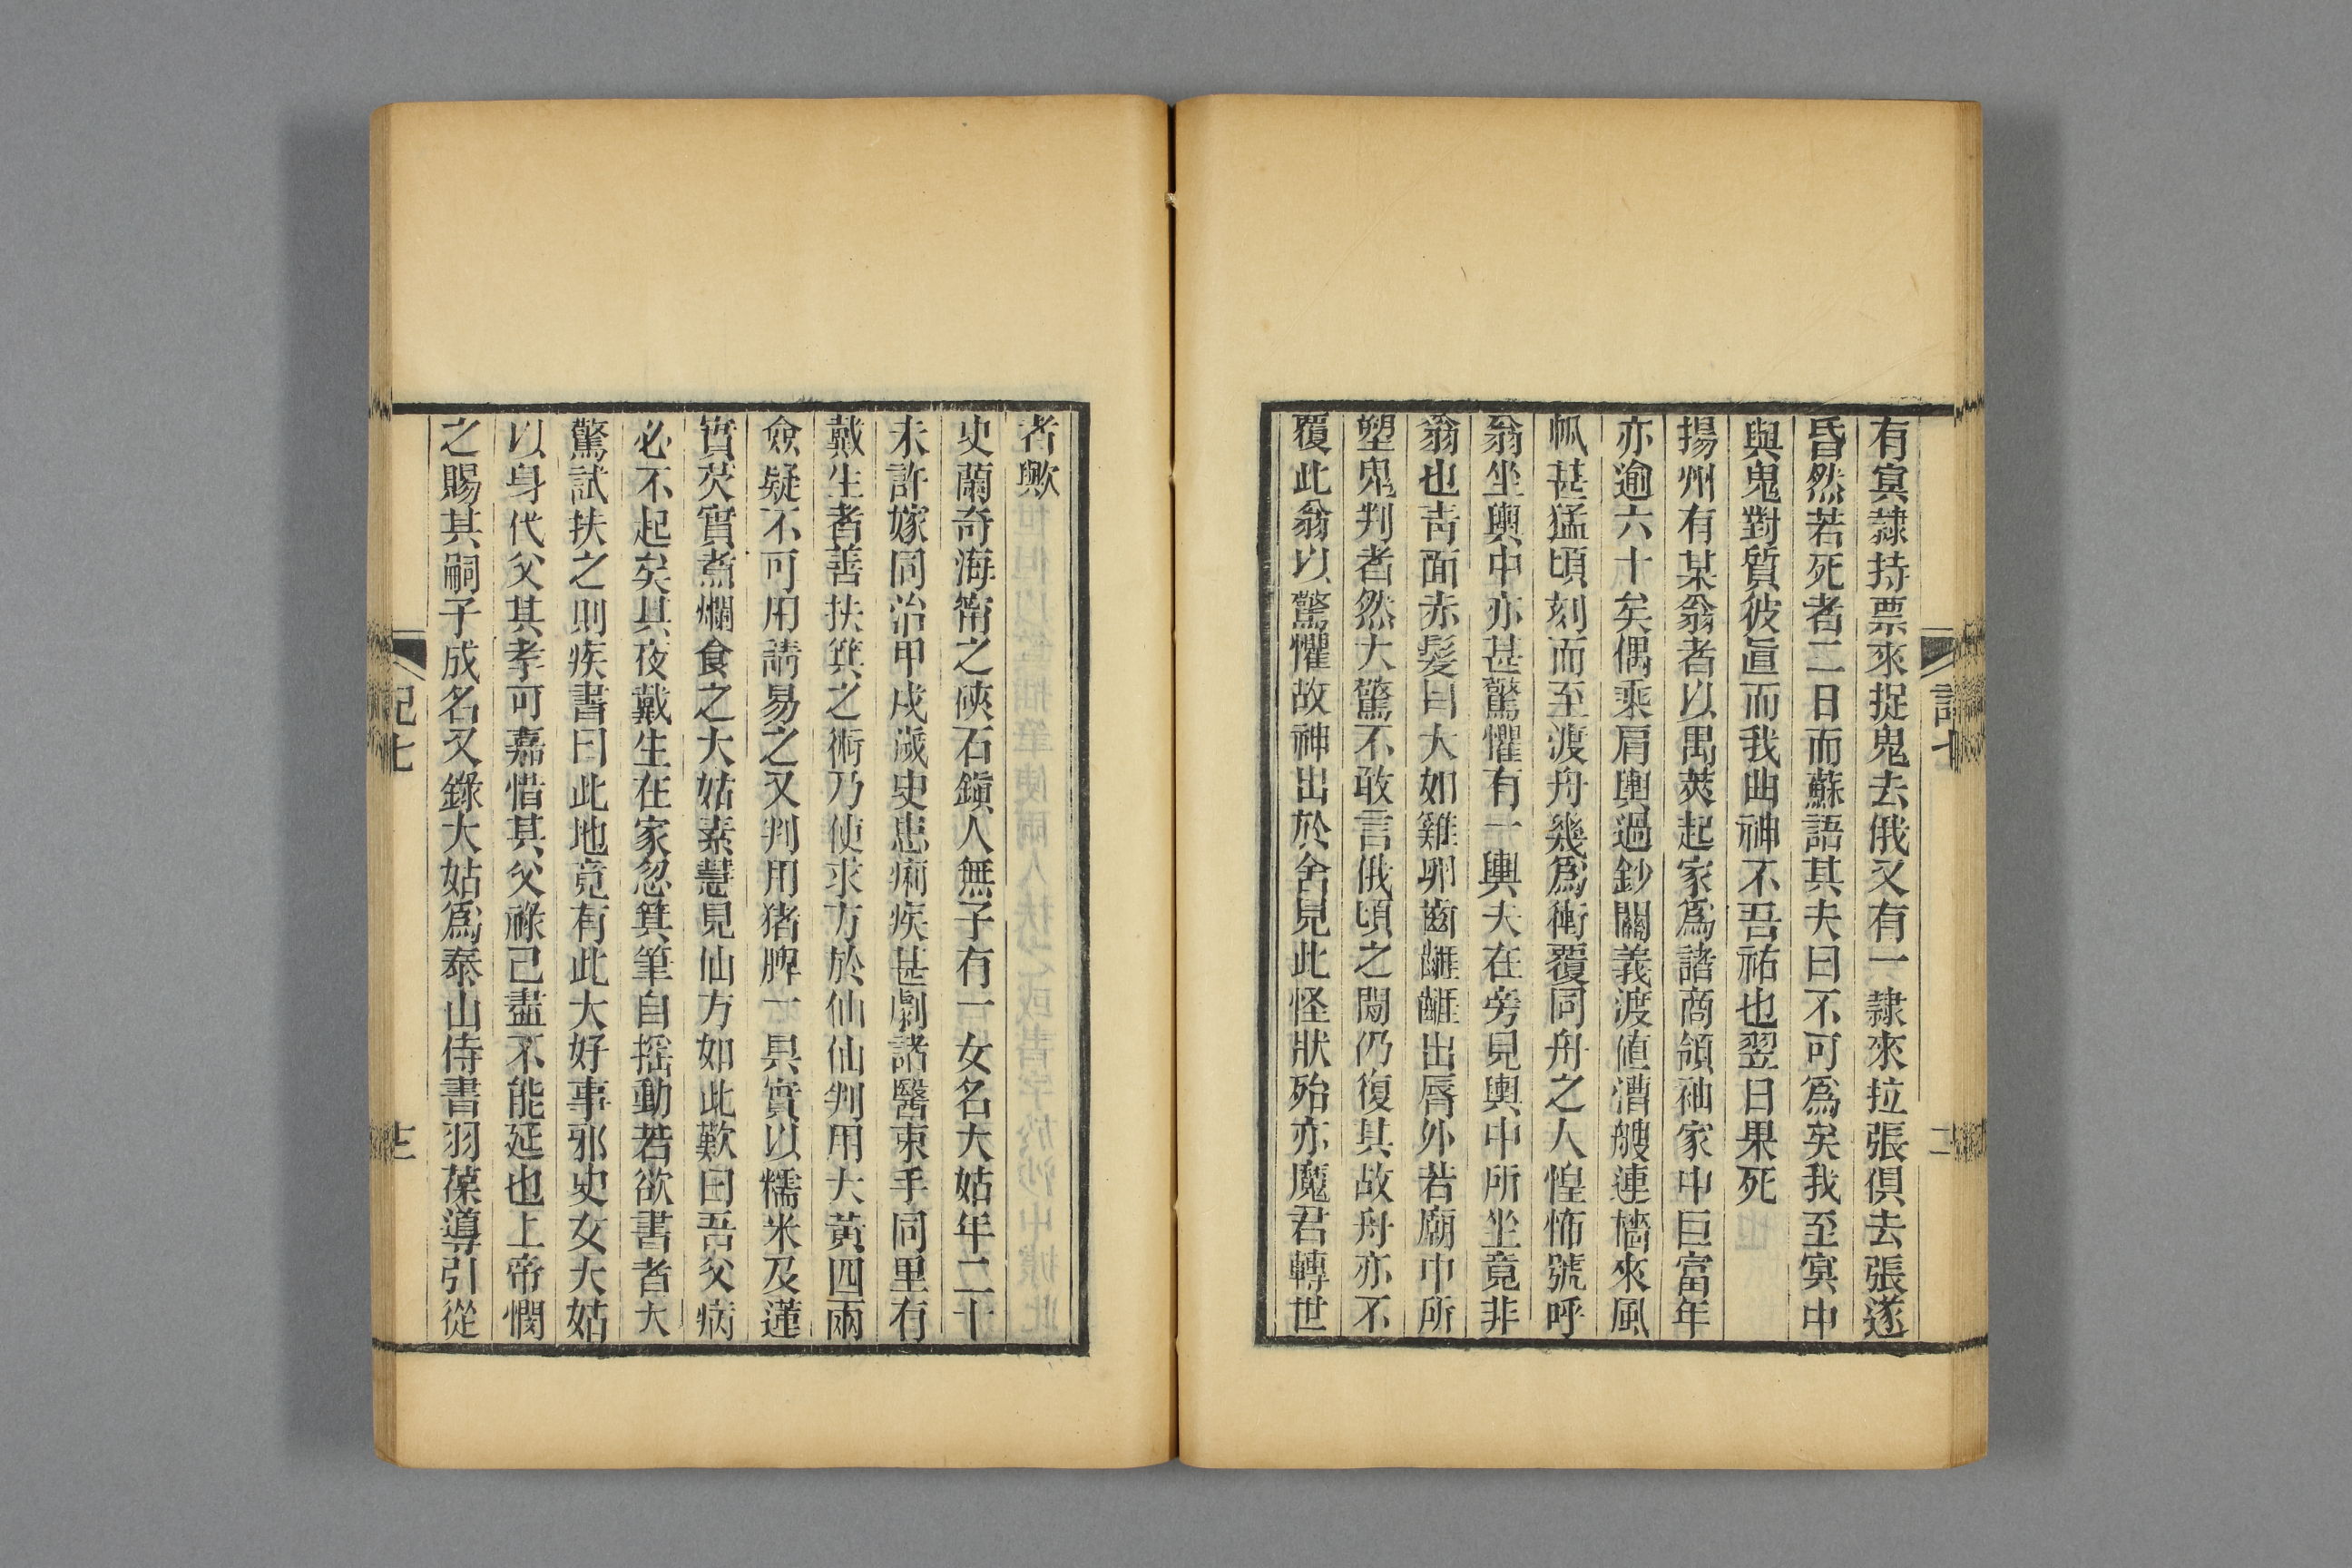 有冥隷持票來捉鬼去俄又有一隷來拉張俱去張遂
昏然若死者二日而蘇語其夫曰不可爲矣我至冥中
與鬼對質彼直而我曲神不吾祐也翌日果死
揚州有某翁者以禺莢起家爲諸商領袖家中巨富年
亦逾六十矣偶乘肩輿過鈔關義渡値漕艘連檣來風
帆甚猛頃刻而至渡舟幾爲衝覆同舟之人惶怖號呼
翁坐輿中亦甚驚懼有一輿夫在旁見輿中所坐竟非
翁也靑面赤髮目大如雞卵齒齟齟出唇外若廟中所
塑鬼判者然大驚不敢言俄頃之間仍復其故舟亦不
覆此翁以驚懼故神出於舍見此怪狀殆亦魔君轉世
者歟
史蘭奇海甯之硤石鎭人無子有一女名大姑年二十
未許嫁同治甲戌歲史患痢疾甚劇諸醫束手同里有
戴生者善扶箕之術乃使求方於仙仙判用大黃四兩
僉疑不可用請易之又判用猪脾一具實以糯米及蓮
實芡實煮爛食之大姑素慧見仙方如此歎曰吾父病
必不起矣其夜戴生在家忽箕筆自搖動若欲書者大
驚試扶之則疾書曰此地竟有此大好事邪史女大姑
以身代父其孝可嘉惜其父祿已盡不能延也上帝憫
之賜其嗣子成名又錄大姑爲泰山侍書羽葆導引從
記七